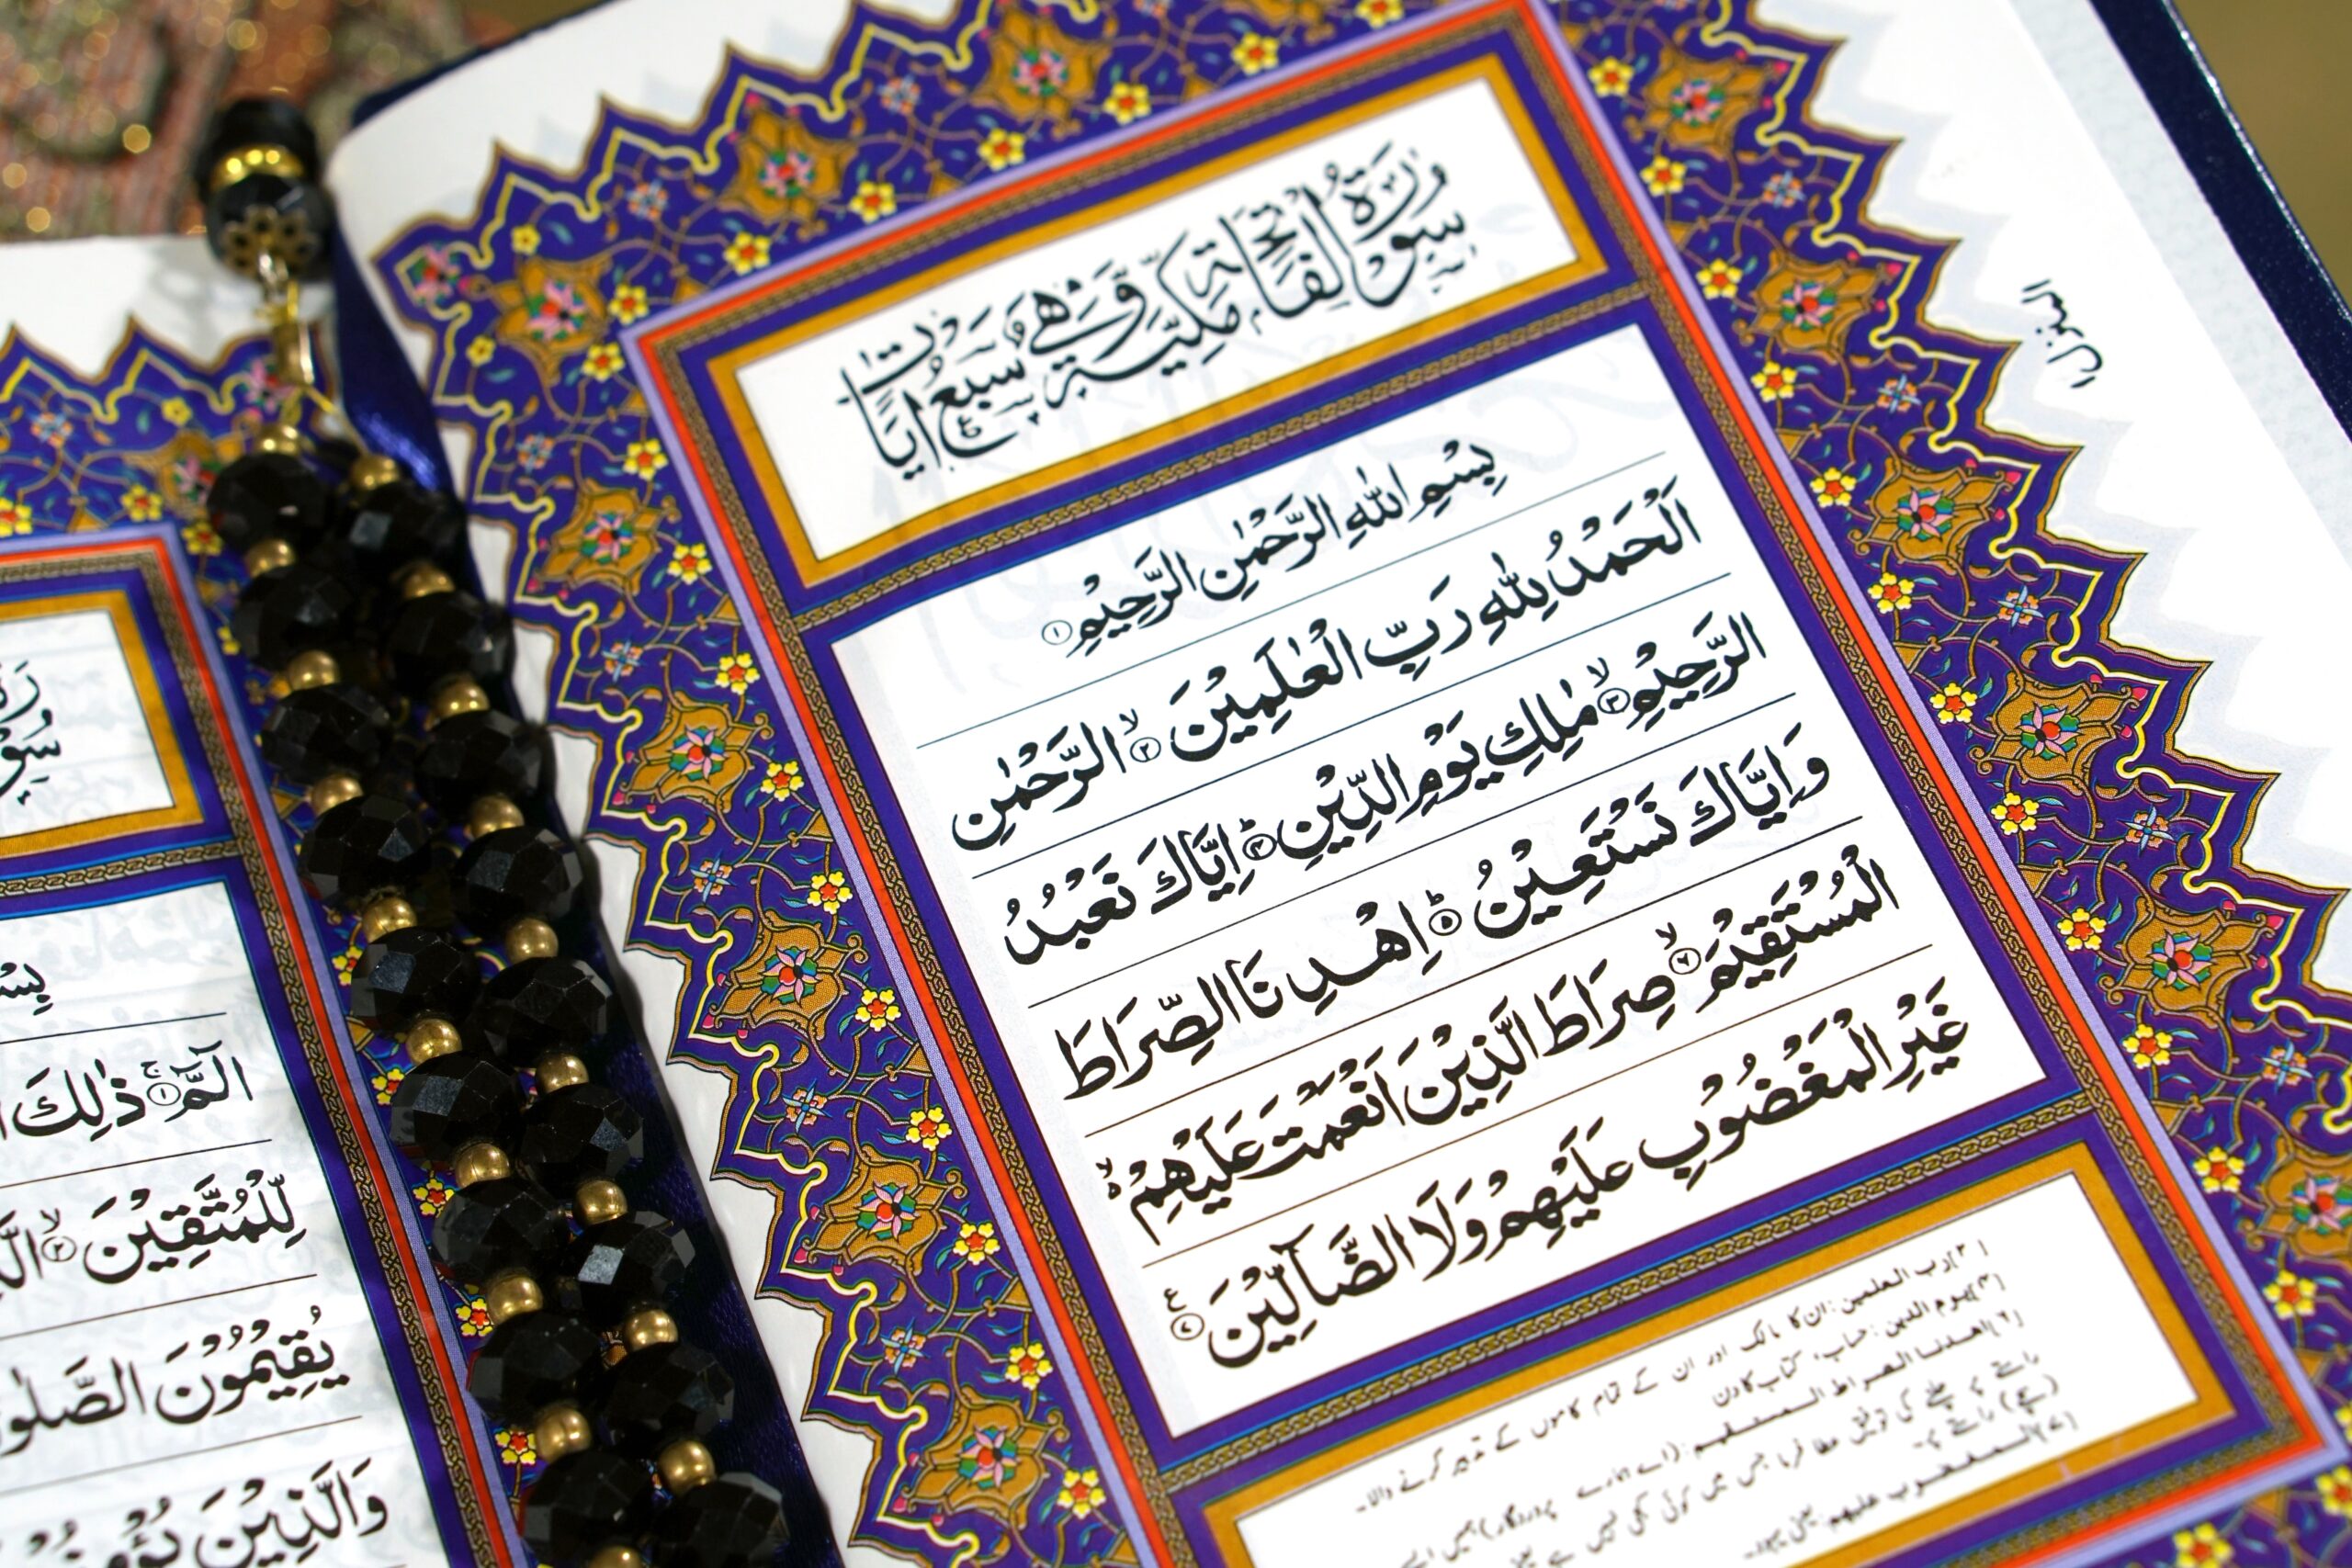 المنزل١
سُوْرَةُ الْفَاتِحَةِ مَكِّيَّةٌ وَّهِيَ سَبْعُ اٰيَاتٍ
بِسْمِ اللّٰهِ الرَّحْمٰنِ الرَّحِيْمِ ①
اَلْحَمْدُ لِلّٰهِ رَبِّ الْعٰلَمِيْنَ ۙ② الرَّحْمٰنِ
الرَّحِيْمِ ۙ③ مٰلِكِ يَوْمِ الدِّيْنِ ؕ④ اِيَّاكَ نَعْبُدُ
وَاِيَّاكَ نَسْتَعِيْنُ ؕ⑤ اِهْدِنَا الصِّرَاطَ
الْمُسْتَقِيْمَ ۙ⑥ صِرَاطَ الَّذِيْنَ اَنْعَمْتَ عَلَيْهِمْ ۙ
غَيْرِ الْمَغْضُوْبِ عَلَيْهِمْ وَلَا الضَّآلِّيْنَ ⑦ ع
[۲] رب العلمین: ان کا مالک اور ان کے تمام کاموں کے تدبیر کرنے والا۔
[۴] یوم الدین: حساب، کتاب کا دن
[۶] اھدنا الصراط المستقیم: (اے ہمارے پروردگار) ہمیں ایسے
راستے پر چلنے کی توفیق عطا فرما جس میں کوئی کجی نہیں ہے یعنی
(سچے) راستے پر۔
[۷] المغضوب علیھم: یعنی یہود۔
سُوْرَةُ
بِسْمِ
الٓمّٓ ۚ① ذٰلِكَ
لِّلْمُتَّقِيْنَ ۙ②
يُقِيْمُوْنَ الصَّلٰوةَ
وَالَّذِيْنَ يُؤْمِنُوْنَ